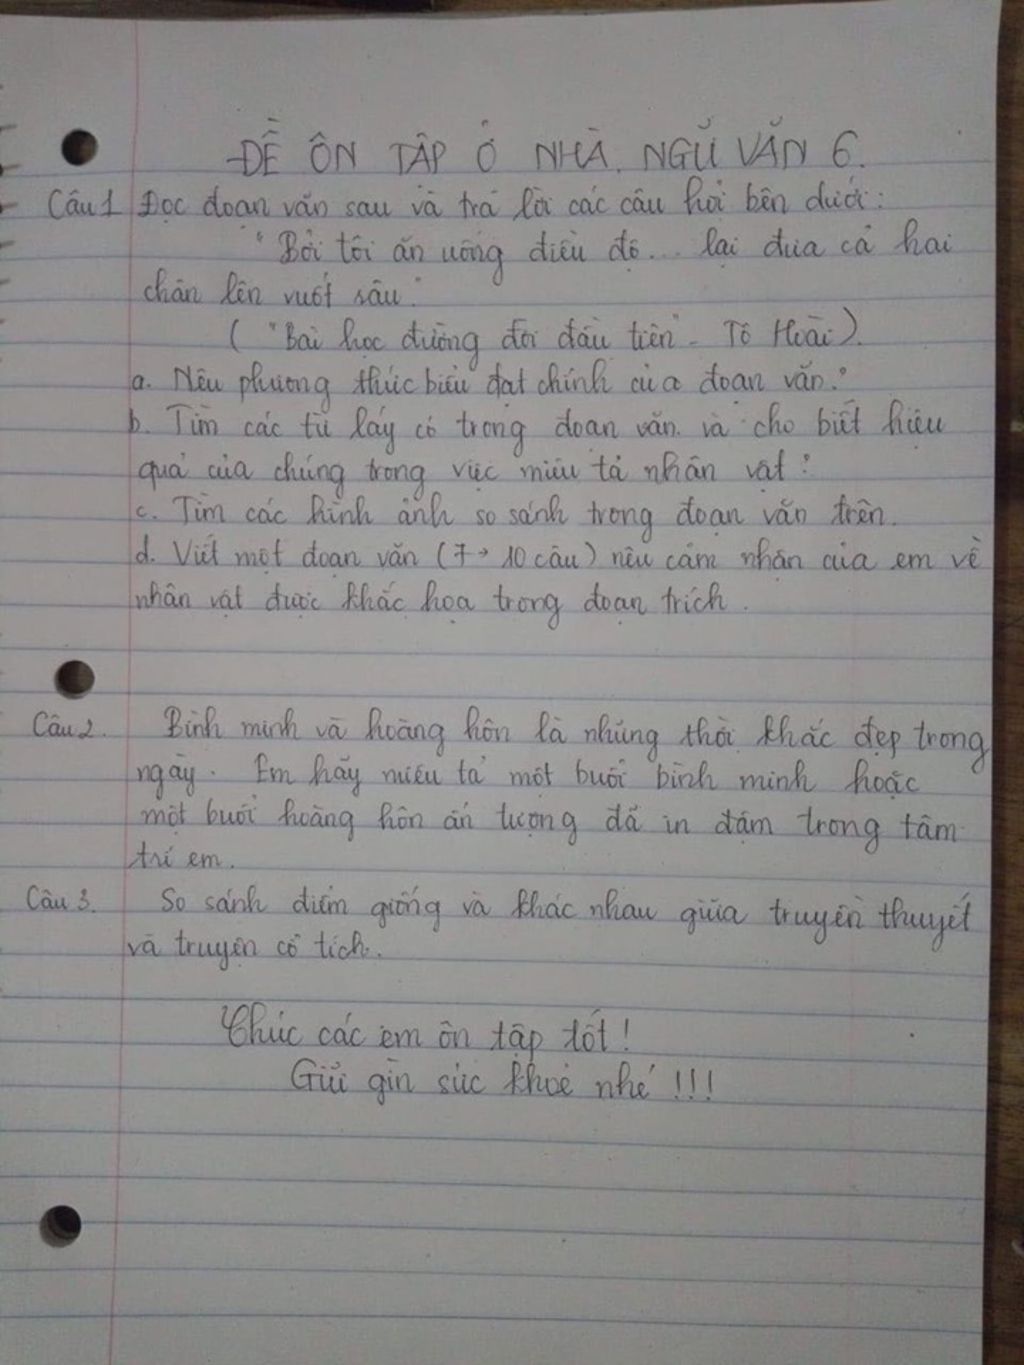 ĐỀ ÔN TẬP Ở NHÀ. NGỮ VĂN 6.
Câu 1 Đọc đoạn văn sau và trả lời các câu hỏi bên dưới:
"Bởi tôi ăn uống điều độ... lại đưa cả hai
chân lên vuốt râu."
( "Bài học đường đời đầu tiên" - Tô Hoài).
a. Nêu phương thức biểu đạt chính của đoạn văn?
b. Tìm các từ láy có trong đoạn văn và cho biết hiệu
quả của chúng trong việc miêu tả nhân vật?
c. Tìm các hình ảnh so sánh trong đoạn văn trên.
d. Viết một đoạn văn (7 → 10 câu) nêu cảm nhận của em về
nhân vật được khắc họa trong đoạn trích.
Câu 2. Bình minh và hoàng hôn là những thời khắc đẹp trong
ngày. Em hãy miêu tả một buổi bình minh hoặc
một buổi hoàng hôn ấn tượng đã in đậm trong tâm
trí em.
Câu 3. So sánh điểm giống và khác nhau giữa truyền thuyết
và truyện cổ tích.
Chúc các em ôn tập tốt!
Giữ gìn sức khoẻ nhé !!!